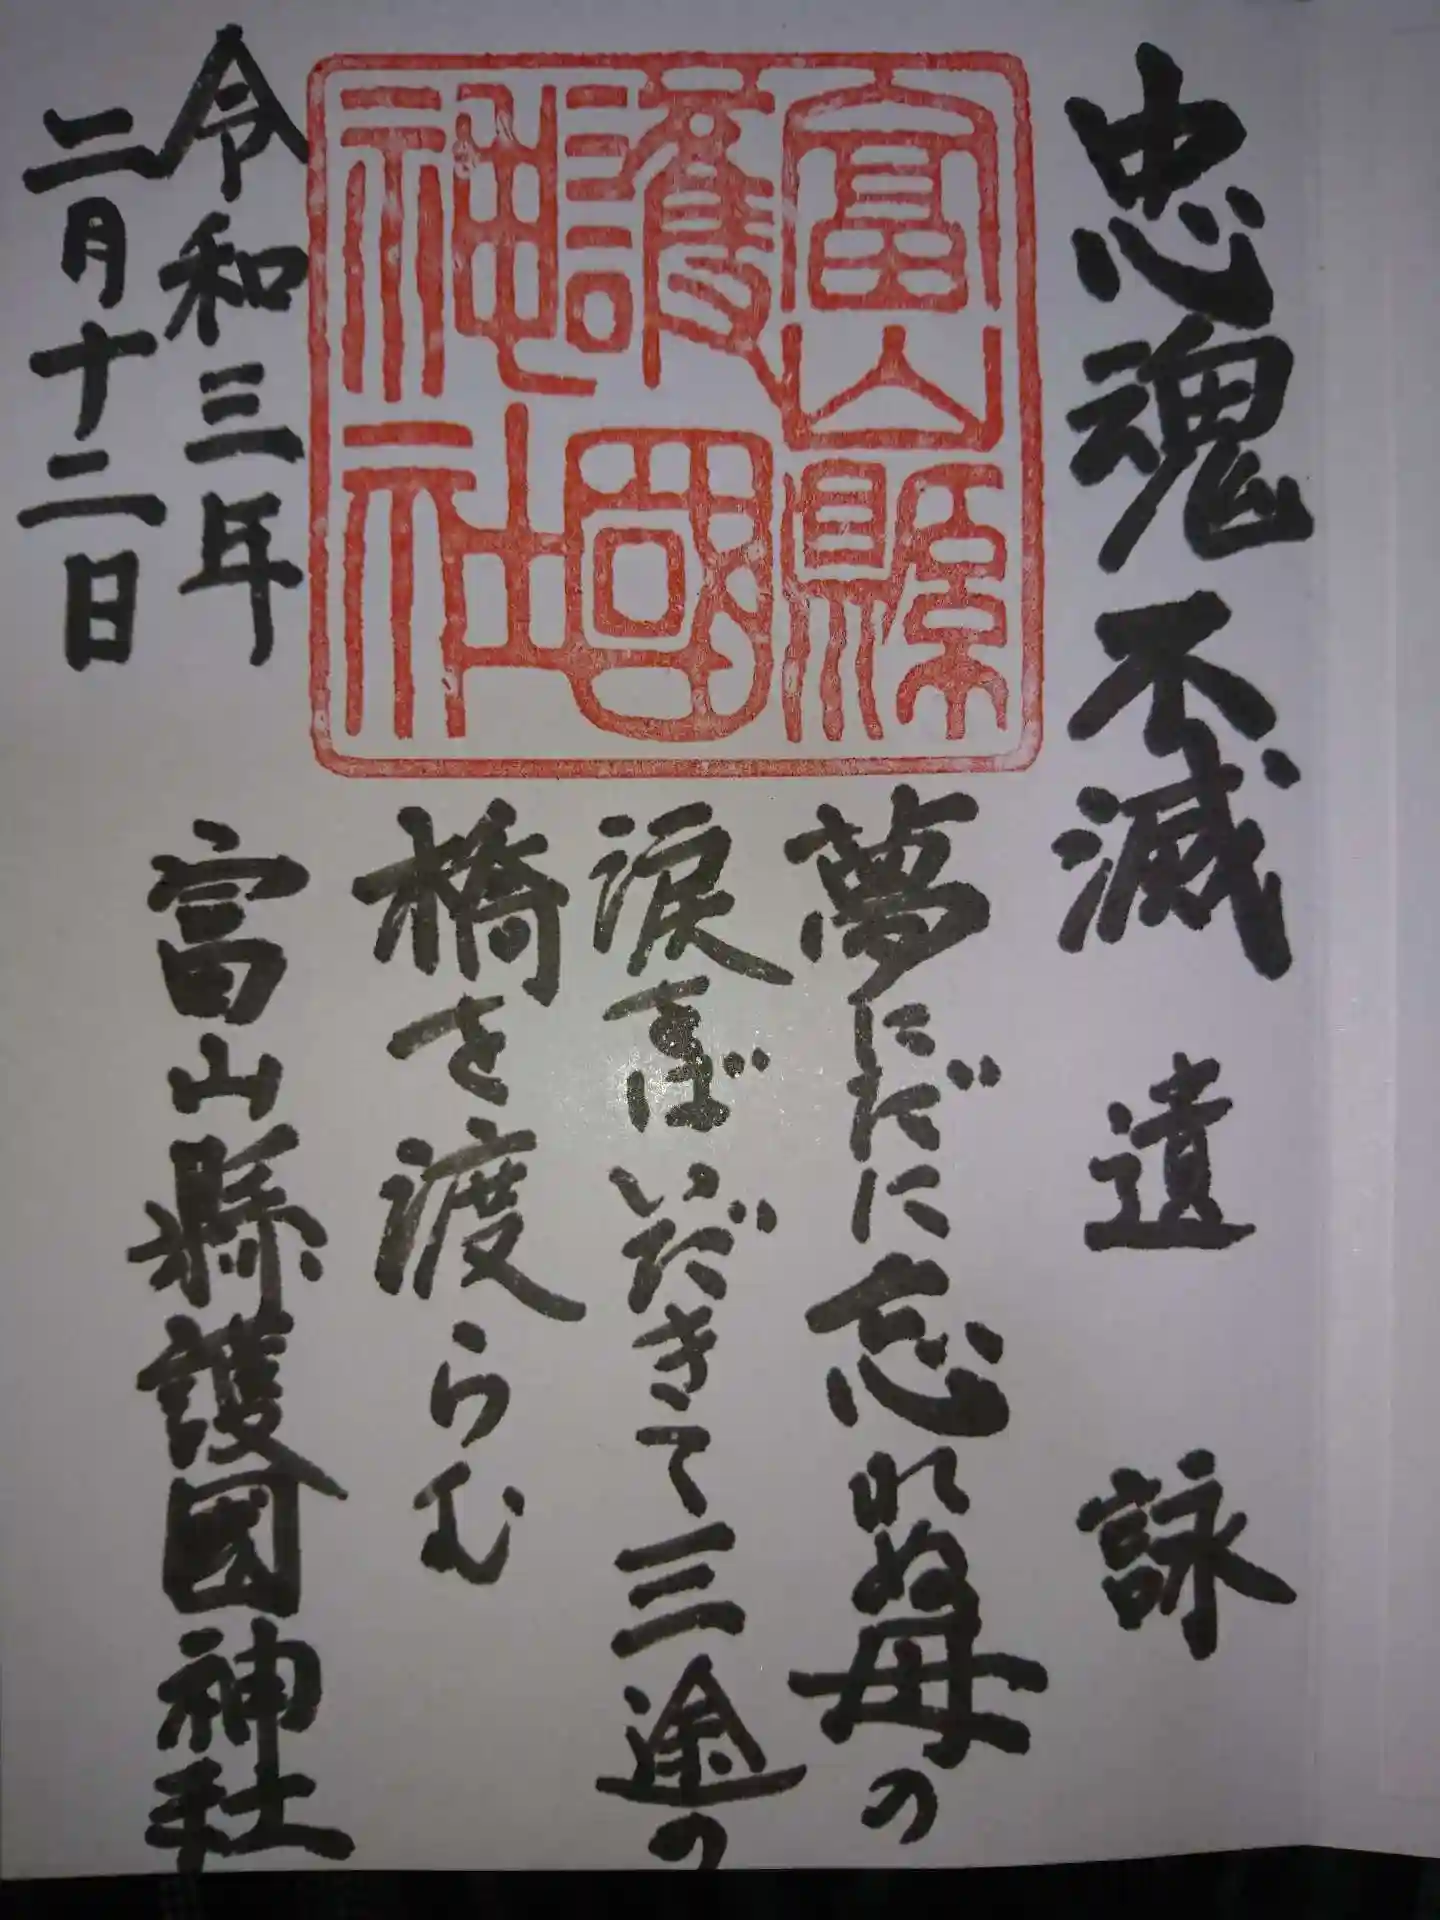 忠魂不滅 遺詠
富山縣
護國
神社
夢にだに忘れぬ母の
涙をばいだきて三途の
橋を渡らむ
令和三年
二月十二日
富山縣護國神社